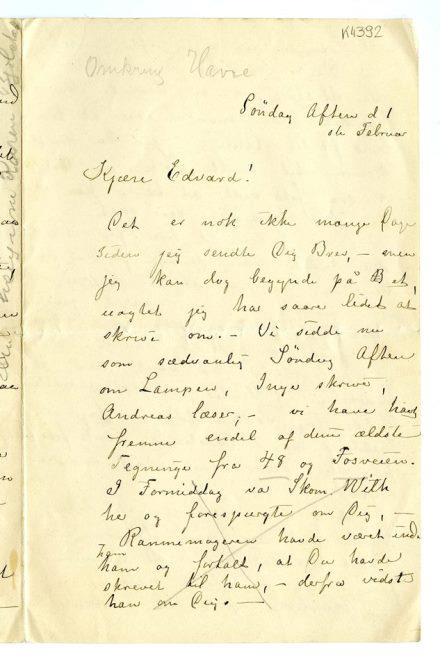 K4392
Omkring Havre
Söndag Aften d 1
ste Februar
Kjære Edvard!
Det er nok ikke mange Dage
siden jeg sendte Dig Brev, – men
jeg kan dog begynde på Et,
uagtet jeg har saare lidet at
skrive om. – Vi sidde nu
som sædvanlig Söndag Aften
om Lampen, Inger skriver,
Andreas læser, – vi have havt
fremme endel af dine ældste
Tegninger fra 48 og Fosveien.
I Formiddag var Skom. Wilh
her og forespurgte om Dig, –
Rammemageren havde været inde
ham
ham og fortalt, at Du havde
skrevet til ham, – derfra vidste
han om Dig. –